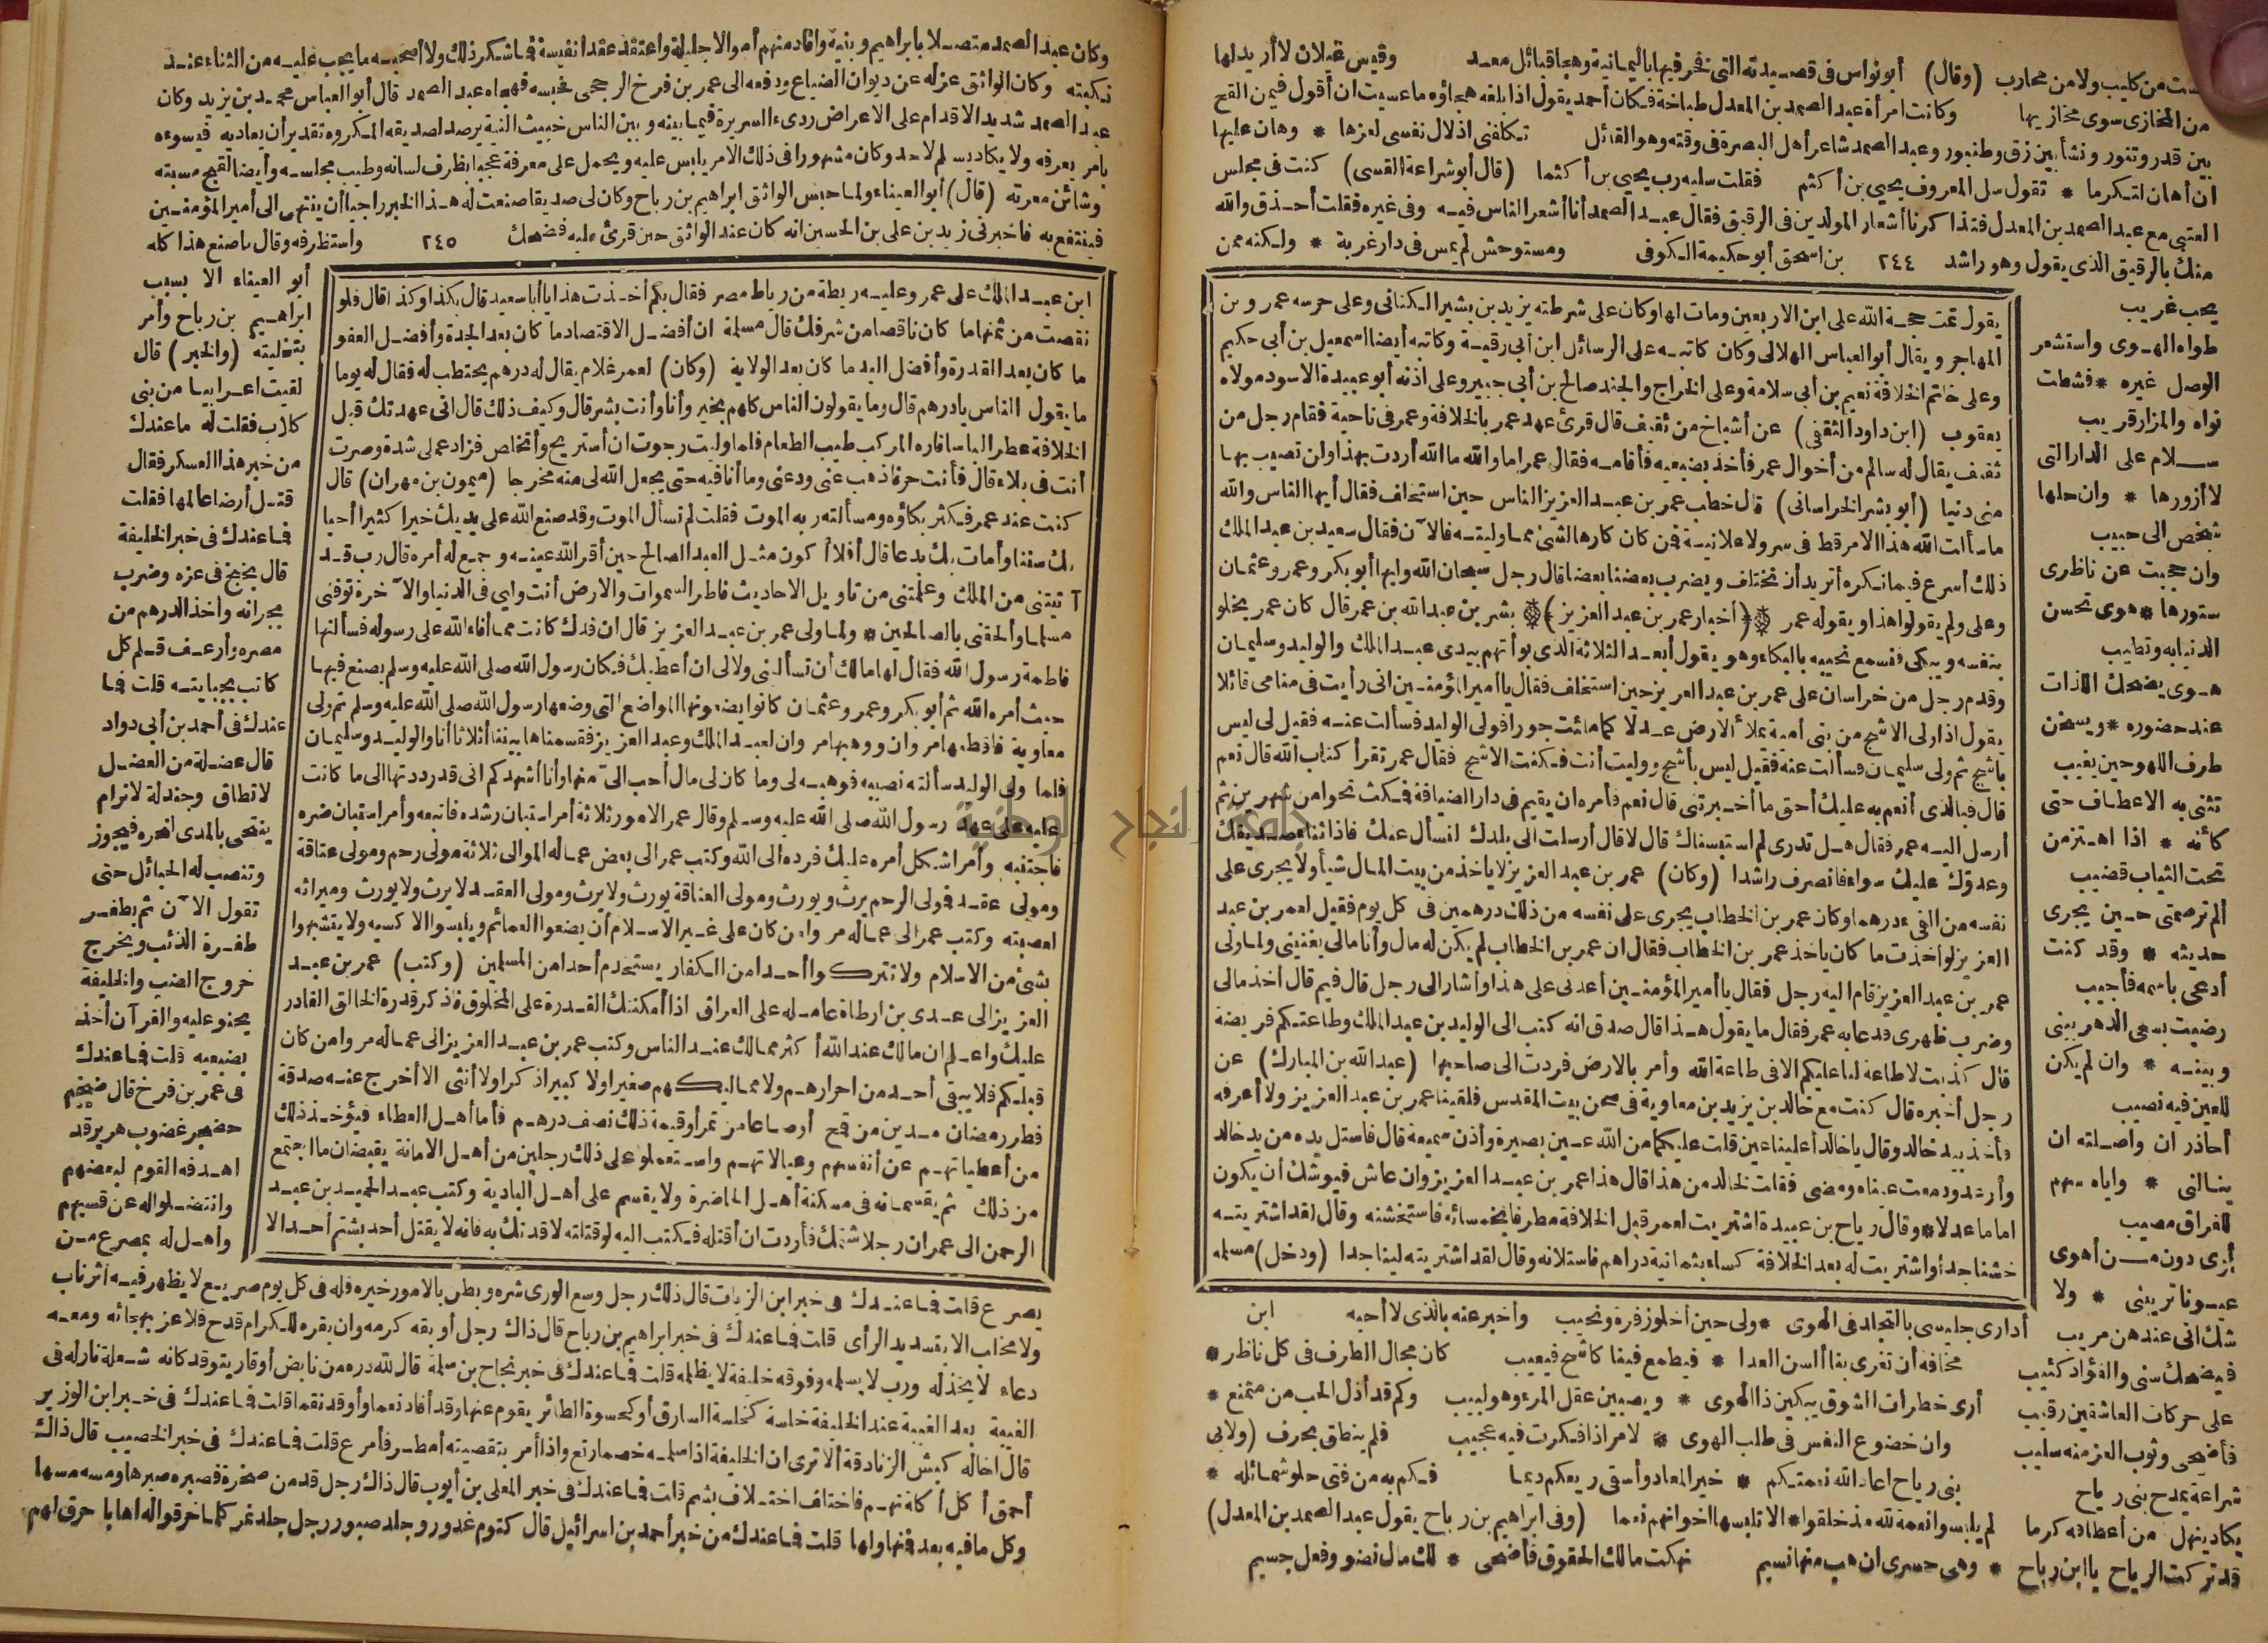 ست من كليب ولا من محارب (وقال) أبو نواس فى قصيدته التى نفر فيها باليمانية وهجا قبائل معد وقيس عيلان لا أريد لها
من المخازى سوى مخازيها وكانت امرأة عبد الصمد بن المعذل طباخة فكان أحمد يقول اذا بلغه هجاؤه ما عسيت ان أقول فيمن القح
بين قدر وتنور ونشأ بين زق وطنبور وعبد الصمد شاعر أهل البصرة فى وقته وهو القائل تكلفنى اذلال نفسى لعزها * وهان عليها
ان أهان لتكرما * تقول سل المعروف يحيى بن أكثم فقلت سليه رب يحيى بن أكثما (قال أبو شراعة القسى) كنت فى مجلس
العتبى مع عبد الصمد بن المعدل فتذاكرنا أشعار المولدين فى الرقيق فقال عبد الصمد أنا أشعر الناس فيه وفى غيره فقلت أحذق والله
منك بالرقيق الذى يقول وهو راشد ٢٤٤ بن اسحق أبو حكيمة الكوفى ومستوحش لم يمس فى دار غربة * ولكنه ممن
يحب غريب
طواه الهوى واستشعر
الوصل غيره * فشطت
نواه والمزار قريب
سلام على الدار التى
لا أزورها * وان حلها
شخص الى حبيب
وان حجبت عن ناظرى
ستورها * هوى تحسن
الدنيا به وتطيب
هوى يضحك اللذات
عند حضوره * ويسخن
طرف اللهو حين يغيب
تثنى به الاعطاف حتى
كأنه * اذا اهتز من
تحت الثياب قضيب
ألم ترصمتى حين يجرى
حديثه * وقد كنت
أدعى باسمه فأجيب
رضيت بسعى الدهر بينى
وبينه * وان لم يكن
للعين فيه نصيب
أحاذر ان واصلته ان
ينالنى * واياه سهم
للفراق مصيب
أرى دون من أهوى
عيونا تريبنى * ولا
شك انى عندهن مريب
يقول تمت حجة الله على ابن الاربعين ومات لها وكان على شرطته يزيد بن بشير الكنانى وعلى حرسه عمرو بن
المهاجر ويقال أبو العباس الهلالى وكان كاتبه على الرسائل ابن أبى رقية وكاتبه أيضا اسمعيل بن أبى حكيم
وعلى خاتم الخلافة نعيم بن أبى سلامة وعلى الخراج والجند صالح بن أبى جبير وعلى اذنه أبو عبيدة الاسود مولاه
يعقوب (ابن داود الثقفى) عن أشياخ من ثقيف قال قرئ عهد عمر بالخلافة وعمر فى ناحية فقام رجل من
ثقيف يقال له سالم من أخوال عمر فأخذ بضبعيه فأقامه فقال عمر اما والله ما الله أردت بهذا وان تصيب بها
منى دنيا (أبو بشر الخراسانى) قال خطب عمر بن عبد العزيز الناس حين استخلف فقال أيها الناس والله
ما سألت الله هذا الامر قط فى سر ولا علانية فمن كان كارها لشئ مما وليته فالآن فقال سعيد بن عبد الملك
ذلك أسرع فيما نكره أتريد أن نختلف ويضرب بعضنا بعضا قال رجل سبحان الله وليها أبو بكر وعمر وعثمان
وعلى ولم يقولوا هذا ويقوله عمر (أخبار عمر بن عبد العزيز) بشر بن عبد الله بن عمر قال كان عمر يخلو
بنفسه ويبكى فنسمع نحيبه بالبكاء وهو يقول أبعد الثلاثة الذى بوأتهم بيدى عبد الملك والوليد وسليمان
وقدم رجل من خراسان على عمر بن عبد العزيز حين استخلف فقال يا أمير المؤمنين انى رأيت فى منامى قائلا
يقول اذا ولى الاشج من بنى أمية يملأ الارض عدلا كما ملئت جورا فولى الوليد فسألت عنه فقيل لى ليس
بأشج ثم ولى سليمان فسألت عنه فقيل ليس بأشج ووليت أنت فكنت الاشج فقال عمر تقرأ كتاب الله قال نعم
قال فبالذى أنعم به عليك أحق ما أخبرتنى قال نعم فأمره ان يقيم فى دار الضيافة فمكث نحوا من شهرين ثم
أرسل اليه عمر فقال هل تدرى لم استبسناك قال لا قال أرسلت الى بلدك لنسأل عنك فاذا ثناء صديقك
وعدوك عليك سواء فانصرف راشدا (وكان) عمر بن عبد العزيز لا يأخذ من بيت المال شيأ ولا يجرى على
نفسه من الفئ درهما وكان عمر بن الخطاب يجرى على نفسه من ذلك درهمين فى كل يوم فقيل لعمر بن عبد
العزيز لو أخذت ما كان يأخذ عمر بن الخطاب فقال ان عمر بن الخطاب لم يكن له مال وأنا مالى يغنينى ولما ولى
عمر بن عبد العزيز قام اليه رجل فقال يا أمير المؤمنين أعدنى على هذا وأشار الى رجل قال فيم قال أخذ مالى
وضرب ظهرى فدعا به عمر فقال ما يقول هذا قال صدق انه كتب الى الوليد بن عبد الملك وطاعتكم فريضة
قال كذبت لا طاعة لنا عليكم الا فى طاعة الله وأمر بالارض فردت الى صاحبها (عبد الله بن المبارك) عن
رجل أخبره قال كنت مع خالد بن يزيد بن معاوية فى صحن بيت المقدس فلقينا عمر بن عبد العزيز ولا أعرفه
فأخذ بيد خالد وقال يا خالد أعلينا عين قلت عليكما من الله عين بصيرة وأذن سميعة قال فاستل يده من يد خالد
وأرعد ودمعت عيناه ومضى فقلت لخالد من هذا قال هذا عمر بن عبد العزيز وان عاش فيوشك أن يكون
اماما عدلا * وقال رياح بن عبيدة اشتريت لعمر قبل الخلافة مطرفا بخمسمائة فاستخشنه وقال لقد اشتريته
خشنا جدا واشتريت له بعد الخلافة كساء بثمانية دراهم فاستلانه وقال لقد اشتريته لينا جدا (ودخل) مسلمة
أدارى جليسى بالتجلد فى الهوى * ولى حين أخلو زفرة ونحيب وأخبر عنه بالذى لا أحبه ابن
فيضحك سنى والفؤاد كئيب مخافة أن تغرى بنا ألسن العدا * فيطمع فينا كاشح فيعيب كان مجال الطرف فى كل ناظر *
على حركات العاشقين رقيب أرى خطرات الشوق يبكين ذا الهوى * ويصبين عقل المرء وهو لبيب وكم قد أذل الحب من متمنع *
فأضحى وثوب العز منه سليب وان خضوع النفس فى طلب الهوى * لامر اذا فكرت فيه عجيب فلم ينطق بحرف (ولابى
شراعة يمدح بنى رياح بنى رياح اعاد الله نعمتكم * خير المعاد وأسقى ربعكم ديما فكم به من فتى حلو شمائله *
يكاد ينهل من أعطافه كرما لم يلبسوا نعمة لله مذ خلقوا * الا تلبسها اخوانهم نعما (وفى ابراهيم بن رباح يقول عبد الصمد بن المعدل)
قد تركت الرياح يا ابن رباح * وهى حسرى ان هب منها نسيم نهكت مالك الحقوق فأضحى * لك مال نضو وفعل جسيم
وكان عبد الصمد متصلا بابراهيم وبنيه وافاد منهم أموالا جليلة واعتقد عقدا نفيسة فما شكر ذلك ولا أصحبه ما يجب عليه من الثناء عند
نكبته وكان الواثق عزله عن ديوان الضياع ودفعه الى عمر بن فرخ الرجحى فحبسه فهجاه عبد الصمد قال أبو العباس محمد بن يزيد وكان
عبد الصمد شديد الاقدام على الاعراض ردىء السريرة فيما بينه وبين الناس خبيث النية يرصد لصديقه المكروه تقدير أن يعاديه فيسوءه
بامر يعرفه ولا يكاد يسلم لاحد وكان مشهورا فى ذلك الامر يلبس عليه ويحمل على معرفة عجبا بظرف لسانه وطيب مجلسه وأيضا لقبح مسبته
وشائن معرته (قال) أبو العيناء ولما حبس الواثق ابراهيم بن رباح وكان لى صديقا صنعت له هذا الخبر راجيا أن ينتهى الى أمير المؤمنين
فينتفع به فاخبرنى زيد بن على بن الحسين انه كان عند الواثق حين قرئ عليه فضحك ٢٤٥ واستظرفه وقال ما صنع هذا كله
ابن عبد الملك على عمر وعليه ريطة من رياط مصر فقال بكم أخذت هذا يا أبا سعيد قال بكذا وكذا قال فلو
نقصت من ثمنها ما كان ناقصا من شرفك قال مسلمة ان أفضل الاقتصاد ما كان بعد الجدة وأفضل العفو
ما كان بعد القدرة وأفضل اليد ما كان بعد الولاية (وكان) لعمر غلام يقال له درهم يحتطب له فقال له يوما
ما يقول الناس يا درهم قال وما يقولون الناس كلهم بخير وأنا وأنت بشر قال وكيف ذلك قال انى عهدتك قبل
الخلافة عطرا لباسا فاره المركب طيب الطعام فلما وليت رجوت ان أستريح وأتخلص فزاد عملى شدة وصرت
أنت فى بلاء قال فأنت حر فاذهب عنى ودعنى وما أنا فيه حتى يجعل الله لى منه مخرجا (ميمون بن مهران) قال
كنت عند عمر فكثر بكاؤه ومسألته ربه الموت فقلت لم تسأل الموت وقد صنع الله على يديك خيرا كثيرا أحيا
بك سننا وأمات بك بدعا قال أفلا أكون مثل العبد الصالح حين أقر الله عينه وجمع له أمره قال رب قد
آتيتنى من الملك وعلمتنى من تأويل الاحاديث فاطر السموات والارض أنت وليى فى الدنيا والآخرة توفنى
مسلما وألحقنى بالصالحين * ولما ولى عمر بن عبد العزيز قال ان فدك كانت مما أفاء الله على رسوله فسألتها
فاطمة رسول الله فقال لها مالك أن تسألينى ولا لى ان أعطيك فكان رسول الله صلى الله عليه وسلم يصنع فيها
حيث أمره الله ثم أبو بكر وعمر وعثمان كانوا يضعونها المواضع التى وضعها رسول الله صلى الله عليه وسلم ثم ولى
معاوية فاقطعها مروان ووهبها مروان لعبد الملك وعبد العزيز فقسمناها بيننا أثلاثا أنا والوليد وسليمان
فلما ولى الوليد سألته نصيبه فوهبه لى وما كان لى مال أحب الى منها وأنا أشهدكم انى قد رددتها الى ما كانت
عليه على عهد رسول الله صلى الله عليه وسلم وقال عمر الامور ثلاثة أمر استبان رشده فاتبعه وأمر استبان ضره
فاجتنبه وأمر أشكل أمره عليك فرده الى الله وكتب عمر الى بعض عماله الموالى ثلاثة مولى رحم ومولى عتاقة
ومولى عقد فمولى الرحم يرث ويورث ومولى العتاقة يورث ولا يرث ومولى العقد لا يرث ولا يورث وميراثه
لعصبته وكتب عمر الى عماله مروا من كان على غير الاسلام أن يضعوا العمائم ويلبسوا الاكسية ولا يتشبهوا
بشئ من الاسلام ولا تتركوا أحدا من الكفار يستخدم أحدا من المسلمين (وكتب) عمر بن عبد
العزيز الى عدى بن ارطاة عامله على العراق اذا أمكنتك القدرة على المخلوق فاذكر قدرة الخالق القادر
عليك واعلم ان مالك عند الله أكثر مما لك عند الناس وكتب عمر بن عبد العزيز الى عماله مروا من كان
قبلكم فلا يبقى أحد من احرارهم ولا مماليكهم صغيرا ولا كبيرا ذكرا ولا أنثى الا أخرج عنه صدقة
فطر رمضان مدين من قمح أو صاعا من تمر أو قيمة ذلك نصف درهم فأما أهل العطاء فيؤخذ ذلك
من أعطياتهم عن أنفسهم وعيالاتهم واستعملوا على ذلك رجلين من أهل الامانة يقبضان ما اجتمع
من ذلك ثم يقسمانه فى مسكنة أهل الحاضرة ولا يقسم على أهل البادية وكتب عبد الحميد بن عبد
الرحمن الى عمر ان رجلا شتمك فأردت ان أقتله فكتب اليه لو قتلته لاقدتك به فانه لا يقتل أحد بشتم أحد الا
أبو العيناء الا بسبب
ابراهيم بن رباح وأمر
بتخليته (والخبر) قال
لقيت اعرابيا من بنى
كلاب فقلت له ما عندك
من خبر هذا العسكر فقال
قتل أرضا عالمها فقلت
فما عندك فى خبر الخليفة
قال بخبخ فى عزه وضرب
بجرانه وأخذ الدرهم من
مصره وأرعف قلم كل
كاتب بجبايته قلت فما
عندك فى أحمد بن أبى دواد
قال عضلة من العضل
لا تطاق وجندلة لا ترام
ينتحى بالمدى لنحره فيجوز
وتنصب له الحبائل حتى
تقول الآن ثم يطفر
طفرة الذئب ويخرج
خروج الضب والخليفة
يحنو عليه والقرآن أخذ
بضبعيه قلت فما عندك
فى عمر بن فرخ قال ضخم
حضجر غضوب هزبر قد
اهدفه القوم لبعضهم
وانتضلوا له عن قسيهم
وأهل له بمصرع من
يصرع قلت فما عندك فى خبر ابن الزيات قال ذلك رجل وسع الورى شره وبطن بالامور خبره فله فى كل يوم صريع لا يظهر فيه أثر ناب
ولا مخلب الا بتسديد الرأى قلت فما عندك فى خبر ابراهيم بن رباح قال ذاك رجل أوبقه كرمه وان يفره للكرام قدح فلا عز بهجائه ومعه
دعاء لا يخذله ورب لا يسلمه وفوقه خليفة لا يظلمه قلت فما عندك فى خبر نجاح بن سلمة قال لله دره من نابض أوتار يتوقد كانه شعلة نار له فى
الفينة بعد الفينة عند الخليفة خلسة كخلسة السارق أو كحسوة الطائر يقوم عنها وقد أفاد نعما وأوقد نقما قلت فما عندك فى خبر ابن الوزير
قال اخاله كبش الزنادقة ألا ترى ان الخليفة اذا أسلمه خضم ارتع واذا أمر بتقصيته أمطر فأمرع قلت فما عندك فى خبر الخصيب قال ذاك
أحمق أكل أكلة نهم فاختلف اختلاف بشم قلت فما عندك فى خبر المعلى بن أيوب قال ذاك رجل قد من صخرة فصبره صبرها ومسه مسها
وكل ما فيه بعد فمنها ولها قلت فما عندك من خبر أحمد بن اسرائيل قال كتوم غدور وجلد صبور رجل جلد نمر كلما خرقوا له اهابا حرق لهم